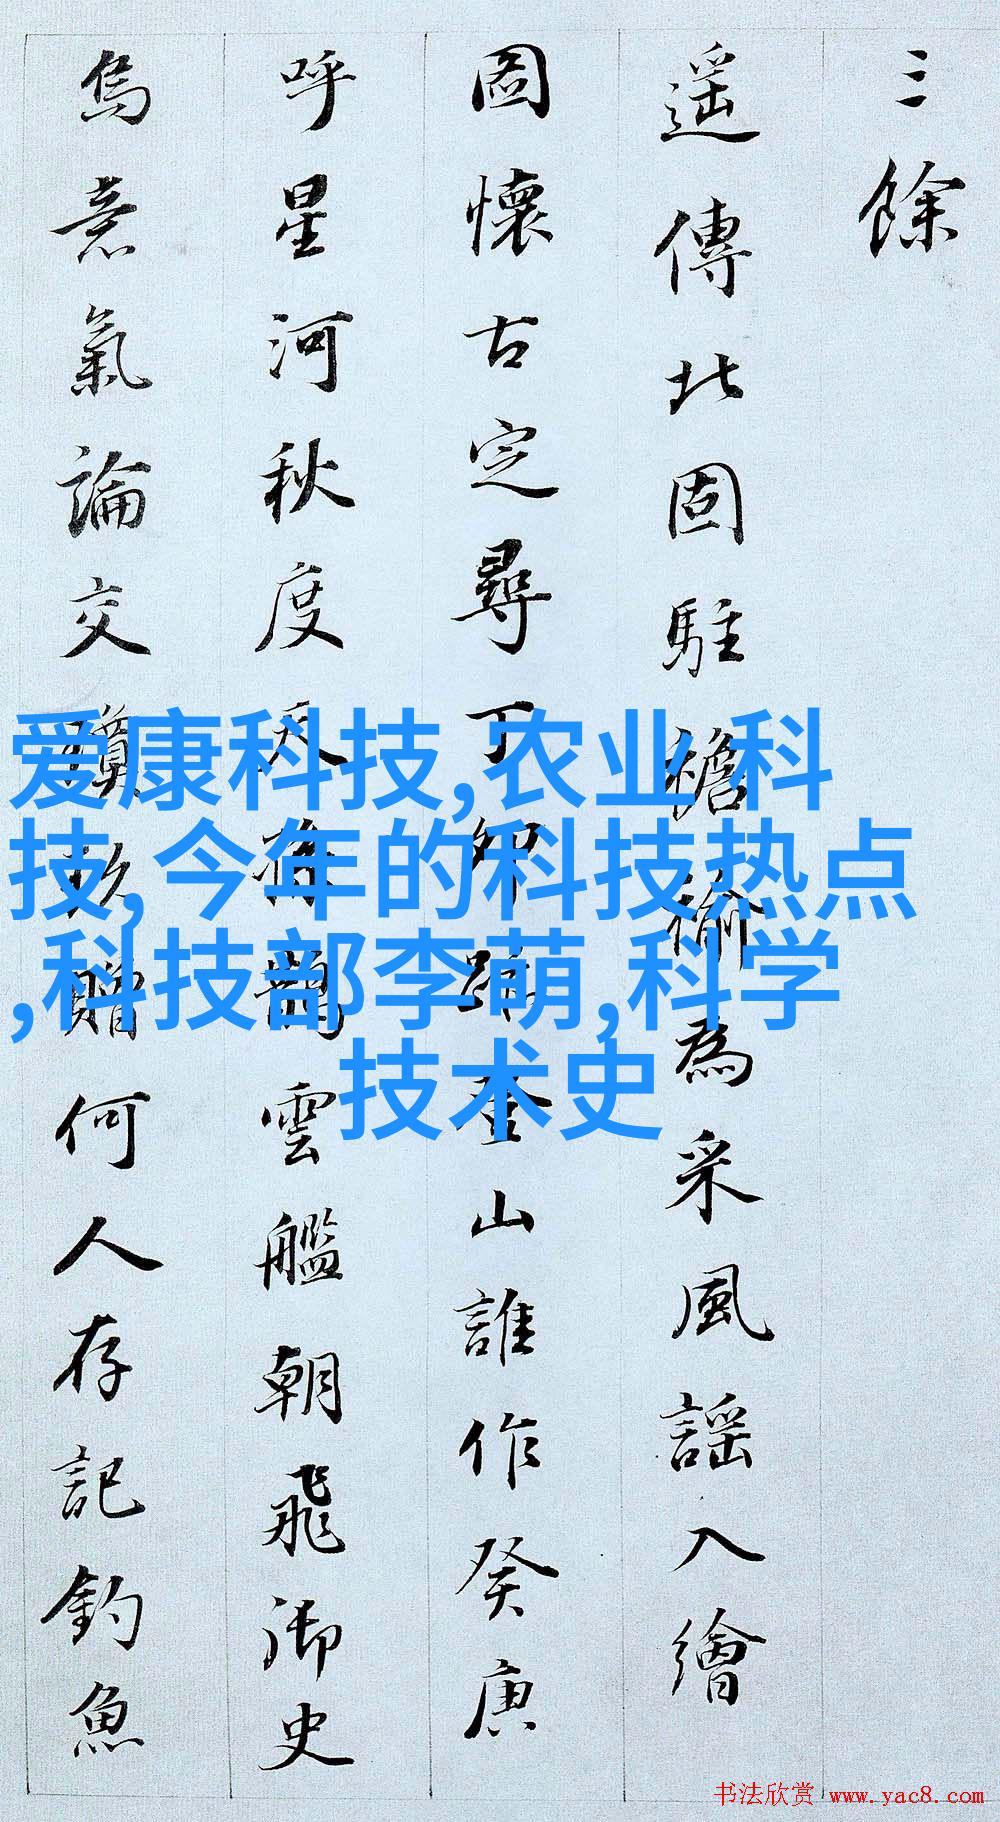 三餘
遥傳北固駐襜褕為采風謡入繪
圖懷古定尋丁卯跡登山誰作癸庚
呼星河秋度天将鷁雲艦朝飛御史
烏意氣論交讚欵贈何人存記釣魚
爱康科技,农业科
技,今年的科技热点
,科技部李萌,科学
技术史
书法欣赏 www.yac8.com